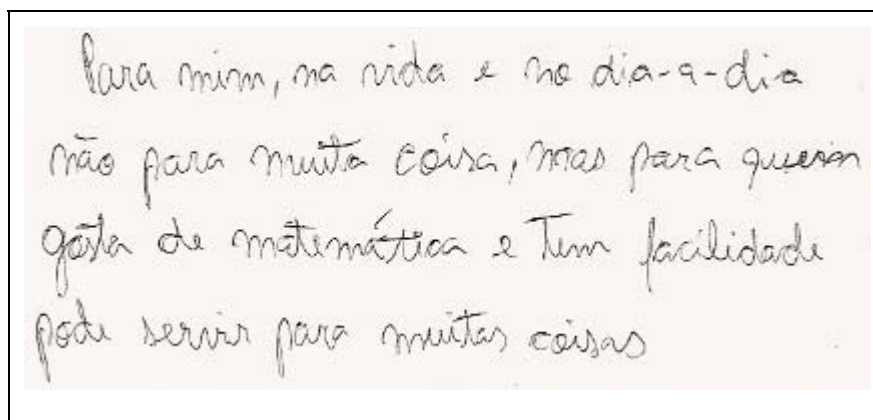 Para mim, na vida e no dia-a-dia
não para muita coisa, mas para quem
gosta de matemática e tem facilidade
pode servir para muitas coisas